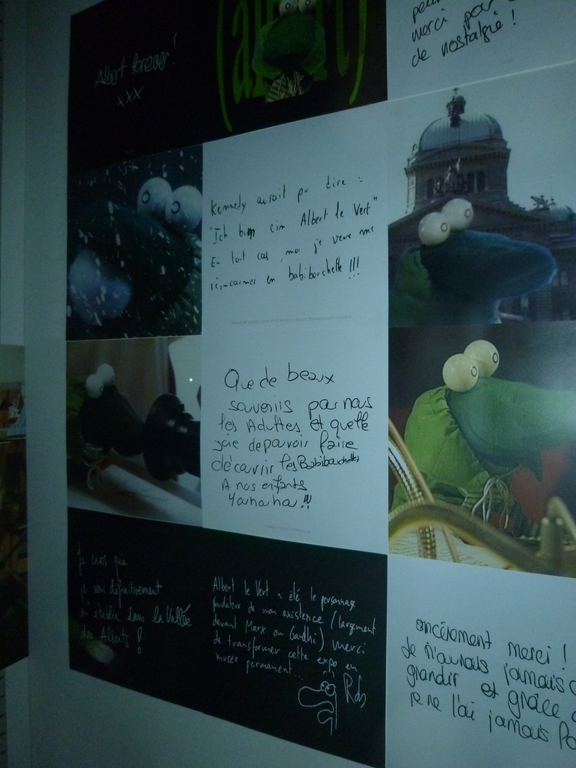 Albert forever!
xxx
(albert)
merci pour
de nostalgie !
Kennedy aurait pu dire :
"Ich bin ein Albert le Vert"
En tout cas, moi je veux me
réincarner en babibouchette !!!
Que de beaux
souvenirs pour nous
les Adultes et quelle
joie de pouvoir faire
découvrir les Babibouchettes
A nos enfants
Yahaha !!!
Je crois que
je vais définitivement
m'établir dans la Vallée
des Alberts !
Albert le Vert a été le personnage
fondateur de mon existence (largement
devant Marx ou Gandhi) merci
de transformer cette expo en
musée permanent...
sincèrement merci !
Je n'aurais jamais
grandir et grâce
je ne l'ai jamais